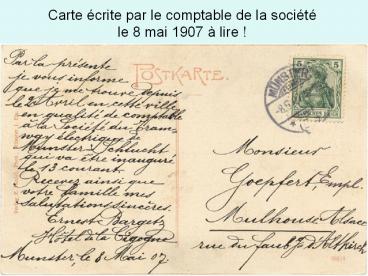 Carte écrite par le comptable de la société
le 8 mai 1907 à lire !
POSTKARTE.
Par la présente
je vous informe
que je me trouve depuis
le 20 Avril en cette ville
en qualité de comptable
à la Société du Tram-
way électrique de
Munster-Schlucht
qui va être inauguré
le 13 courant.
Recevez ainsi que
votre famille mes
salutations sincères.
Ernest
Hôtel de la Cigogne
Munster, le 8 Mai 07
5 5
MÜNSTER
Monsieur
Goepfert, Empl.
Mulhouse Alsace
rue du faubg d'Altkirch